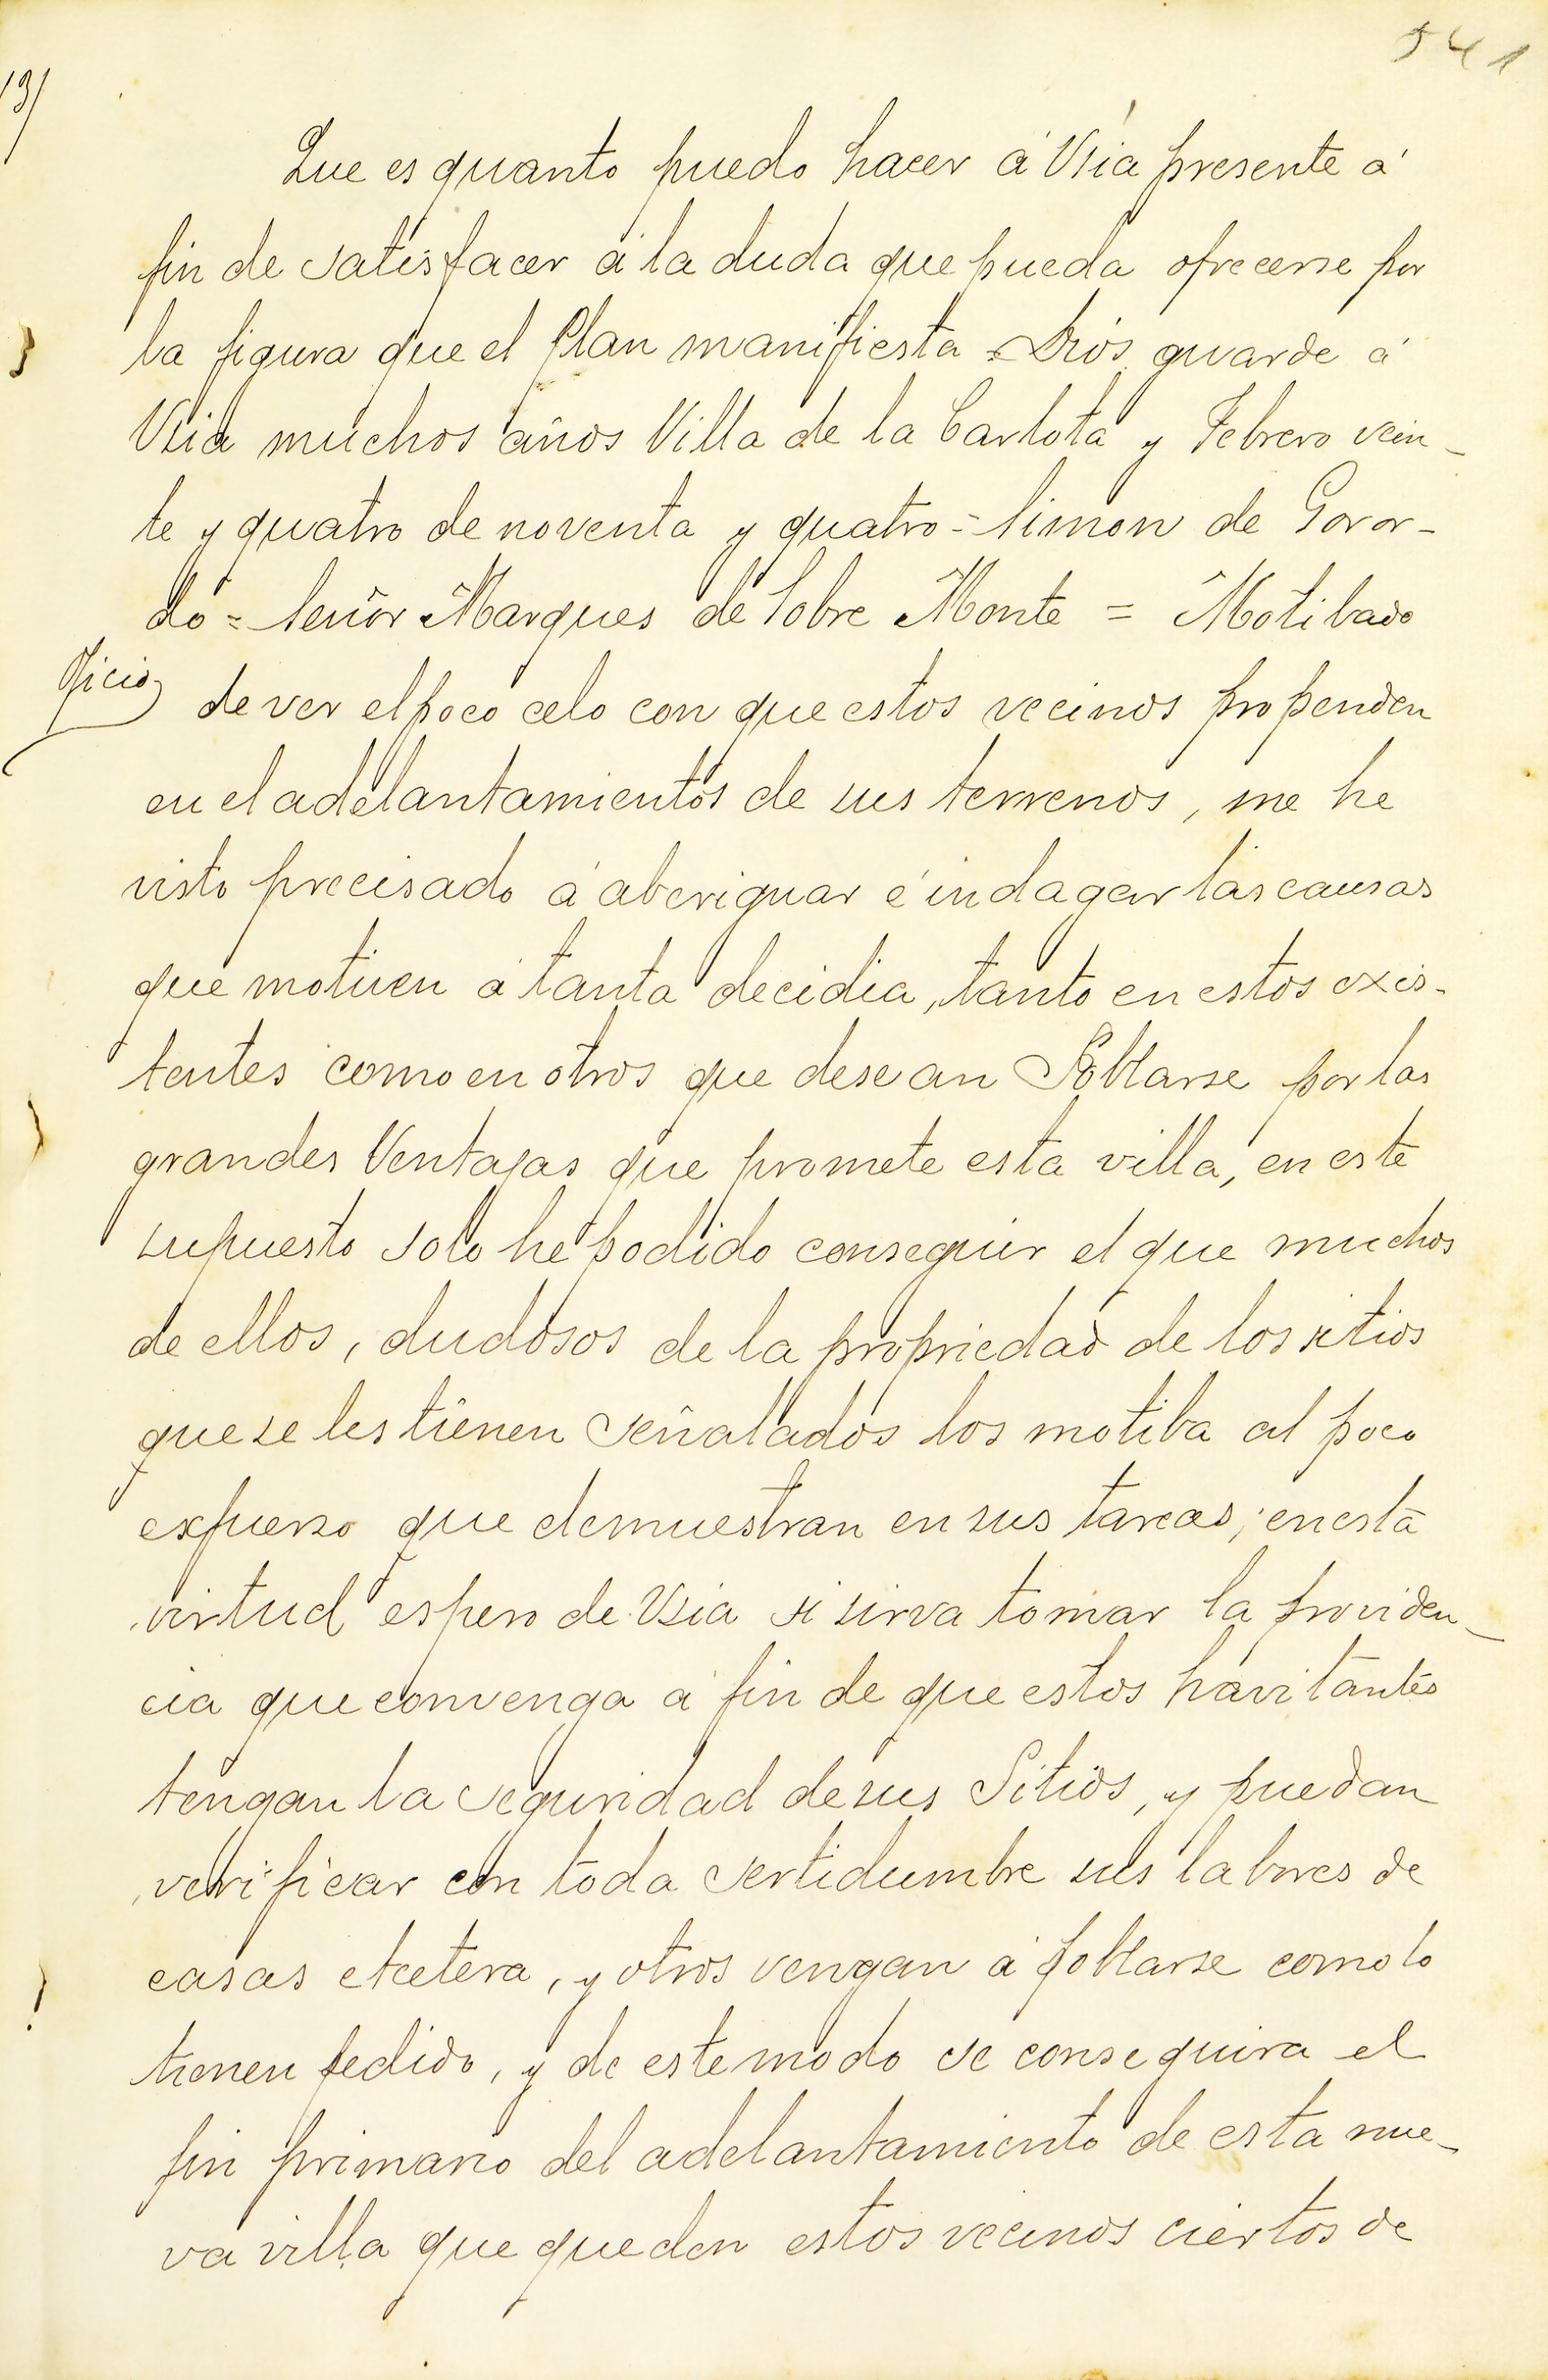 541
13/
Que es quanto puedo hacer á Vsia presente á
fin de satisfacer á la duda que pueda ofrecerse por
la figura que el Plan manifiesta = Dios guarde á
Vsia muchos años Villa de la Carlota y Febrero vein-
te y quatro de noventa y quatro = Simon de Goror-
do = Señor Marques de Sobre Monte = Motibado
Oficio
de ver el poco celo con que estos vecinos propenden
en el adelantamientos de sus terrenos, me he
visto precisado á aberiguar é indagar las causas
que motiven á tanta decidia, tanto en estos exis-
tentes como en otros que desean Poblarse por las
grandes Ventajas que promete esta villa, en este
supuesto solo he podido conseguir el que muchos
de ellos, dudosos de la propriedad de los sitios
que se les tienen señalados los motiba al poco
exfuerso que demuestran en sus tareas; en esta
virtud espero de Vsia si sirva tomar la providen-
cia que convenga á fin de que estos havitantes
tengan la seguridad de sus Sitios, y puedan
verificar con toda sertidumbre sus labores de
casas etcetera, y otros vengan á poblarse como lo
tienen pedido, y de este modo se conseguira el
fin primario del adelantamiento de esta nue-
va villa que queden estos vecinos ciertos de